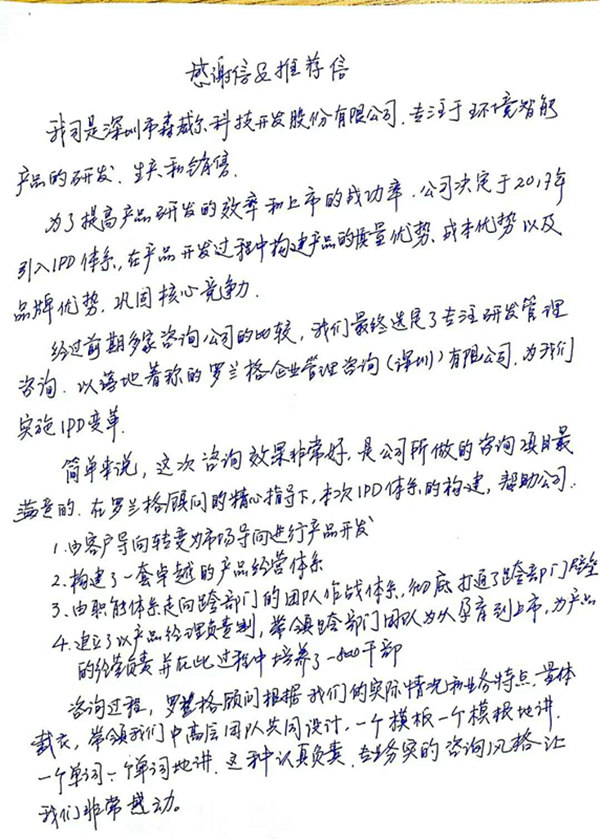 感谢信及推荐信
我司是深圳市森威尔科技开发股份有限公司，专注于环境智能
产品的研发、生产和销售.
为了提高产品研发的效率和上市的成功率，公司决定于2017年
引入IPD体系，在产品开发过程中构建产品的质量优势、成本优势以及
品牌优势，巩固核心竞争力.
经过前期多家咨询公司的比较，我们最终选定了专注研发管理
咨询，以落地著称的罗兰格企业管理咨询（深圳）有限公司，为我们
实施IPD变革.
简单来说，这次咨询效果非常好，是公司所做的咨询项目最
满意的，在罗兰格顾问的精心指导下，本次IPD体系的构建，帮助公司：
1.由客户导向转变为市场导向进行产品开发
2.构建了一套卓越的产品经营体系
3.由职能体系走向跨部门的团队作战体系，彻底打通了跨部门壁垒
4.建立了以产品经理负责制，带领跨部门团队为从孕育到上市，为产品
的经营负责并在此过程中培养了一批干部
咨询过程，罗兰格顾问根据我们的实际情况和业务特点，量体
裁衣，带领我们中高层团队共同设计，一个模板一个模板地讲，
一个单词一个单词地讲，这种认真负责、专业务实的咨询风格让
我们非常感动。